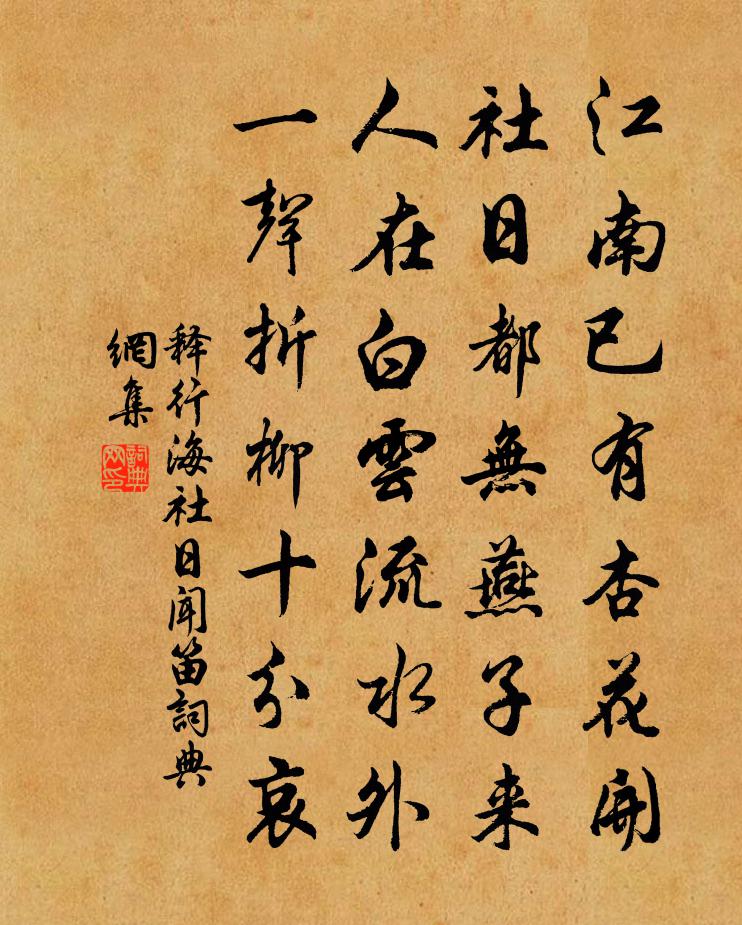 江南已有杏花開
社日都無燕子来
人在白雲流水外
一聲折柳十分哀
释行海社日聞笛詞典
網集
詞典
网印